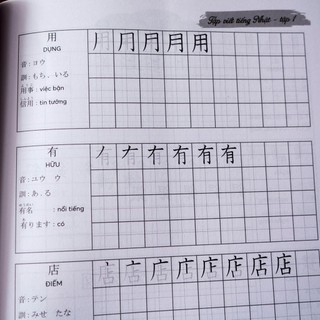 Tập viết tiếng Nhật - tập 1
用 用
DỤNG
音 : ヨウ
訓 : もち、いる
用事 : việc bận
信用 : tin tưởng
有 有
HỮU
音 : ユウ ウ
訓 : あ.る
有名 : nổi tiếng
有ります : có
店 店
ĐIẾM
音 : テン
訓 : みせ たな